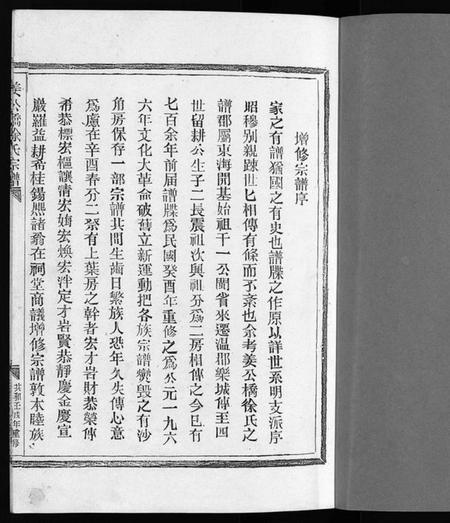 增修宗譜序
家之有譜猶國之有史也譜牒之作原以詳世系明支派序
昭穆別親疎世匕相傳有條而不紊也余考姜公橋徐氏之
譜郡屬東海開基始祖千一公閩省來遷温郡樂城傳至四
世留耕公生子二長震祖次興祖分爲二房相傳之今已有
七百余年前届譜牒爲民國癸酉年重修之爲公元一九六
六年文化大革命破舊立新運動把各族宗譜燹毁之有沙
角房保存一部宗譜其間生齒日繁族人恐年久失傳心意
爲慮在辛酉春分二祭有上葉房之幹者宏才岩財恭榮傳
希恭標宏樞讓清宏嬌宏煥宏泮定才岩賢恭靜慶金慶宣
巖羅益耕希桂錫熙諸翁在祠堂商議增修宗譜敦本睦族
姜公橋徐氏宗譜
共和壬戌年重修